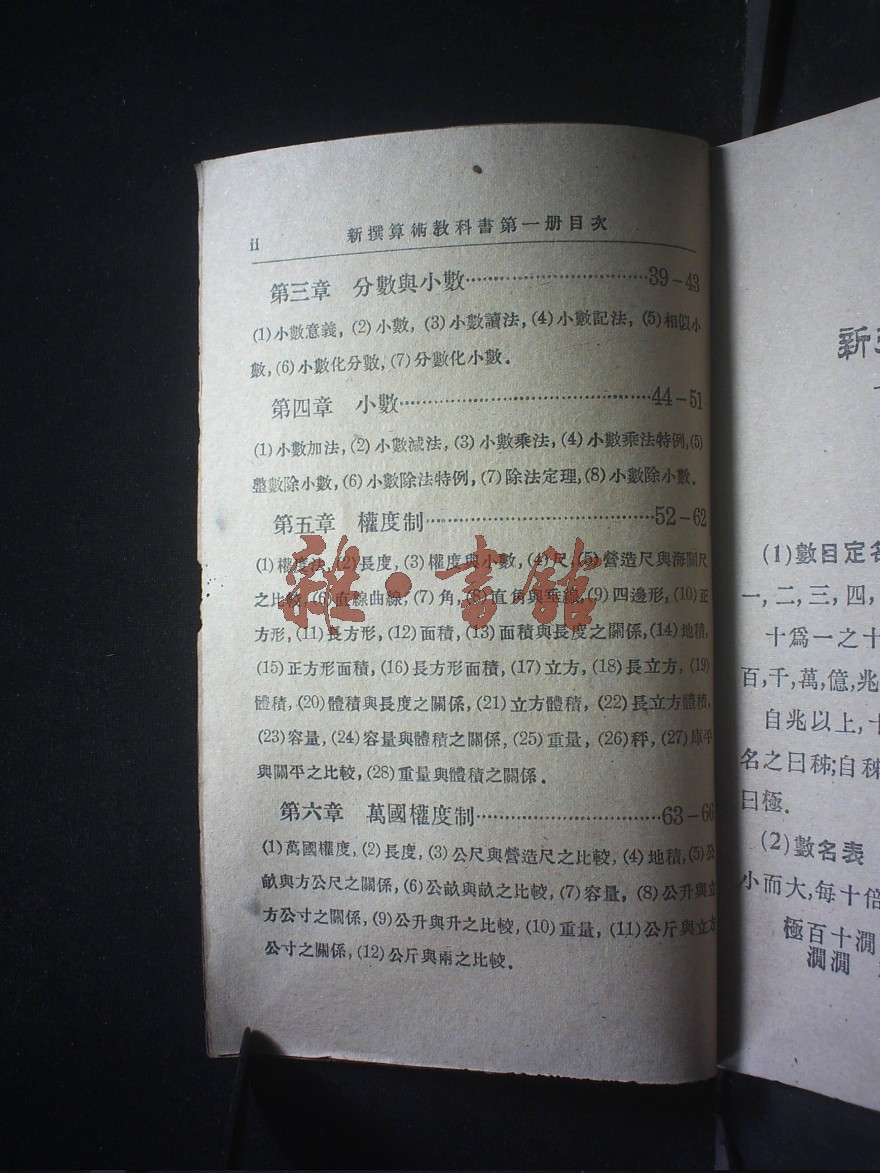 ii 新撰算術教科書第一册目次
第三章 分數與小數……………………39-43
(1)小數意義, (2)小數, (3)小數讀法, (4)小數記法, (5)相似小
數, (6)小數化分數, (7)分數化小數.
第四章 小數……………………44-51
(1)小數加法, (2)小數減法, (3)小數乘法, (4)小數乘法特例, (5)
整數除小數, (6)小數除法特例, (7)除法定理, (8)小數除小數.
第五章 權度制……………………52-62
(1)權度法, (2)長度, (3)權度與小數, (4)尺, (5)營造尺與海關尺
之比較, (6)直線曲線, (7)角, (8)直角與垂線, (9)四邊形, (10)正
方形, (11)長方形, (12)面積, (13)面積與長度之關係, (14)地積,
(15)正方形面積, (16)長方形面積, (17)立方, (18)長立方, (19)
體積, (20)體積與長度之關係, (21)立方體積, (22)長立方體積,
(23)容量, (24)容量與體積之關係, (25)重量, (26)秤, (27)庫平
與關平之比較, (28)重量與體積之關係.
第六章 萬國權度制……………………63-66
(1)萬國權度, (2)長度, (3)公尺與營造尺之比較, (4)地積, (5)公
畝與方公尺之關係, (6)公畝與畝之比較, (7)容量, (8)公升與立
方公寸之關係, (9)公升與升之比較, (10)重量, (11)公斤與立方
公寸之關係, (12)公斤與兩之比較.
雜·書館
新
(1)數目定名
一, 二, 三, 四,
十爲一之十
百, 千, 萬, 億, 兆
自兆以上, 十
名之曰秭; 自秭
曰極.
(2)數名表
小而大, 每十倍
極百十澗
澗澗